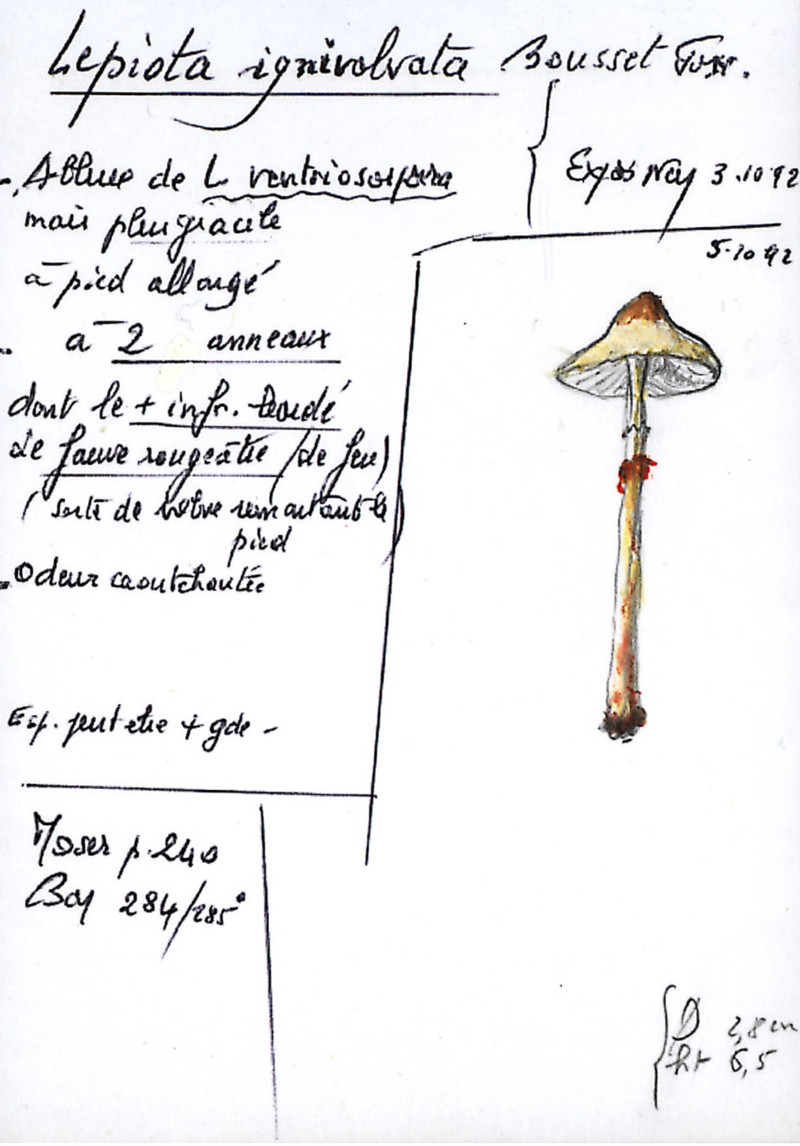 Lepiota ignivolvata Bousset Joss.
Expos Ney 3.10 92
5.10 92
- Allure de L ventriosospora
mais plus gracile
à pied allongé
.. à 2 anneaux
dont le + infr. bordé
de fauve rougeâtre (de feu)
(sorte de volve remontant le
pied
- Odeur caoutchoutée
Esp. peut etre + gde -
Moser p. 240
Bon 284/285°
D 2,8 cm
ht 6,5